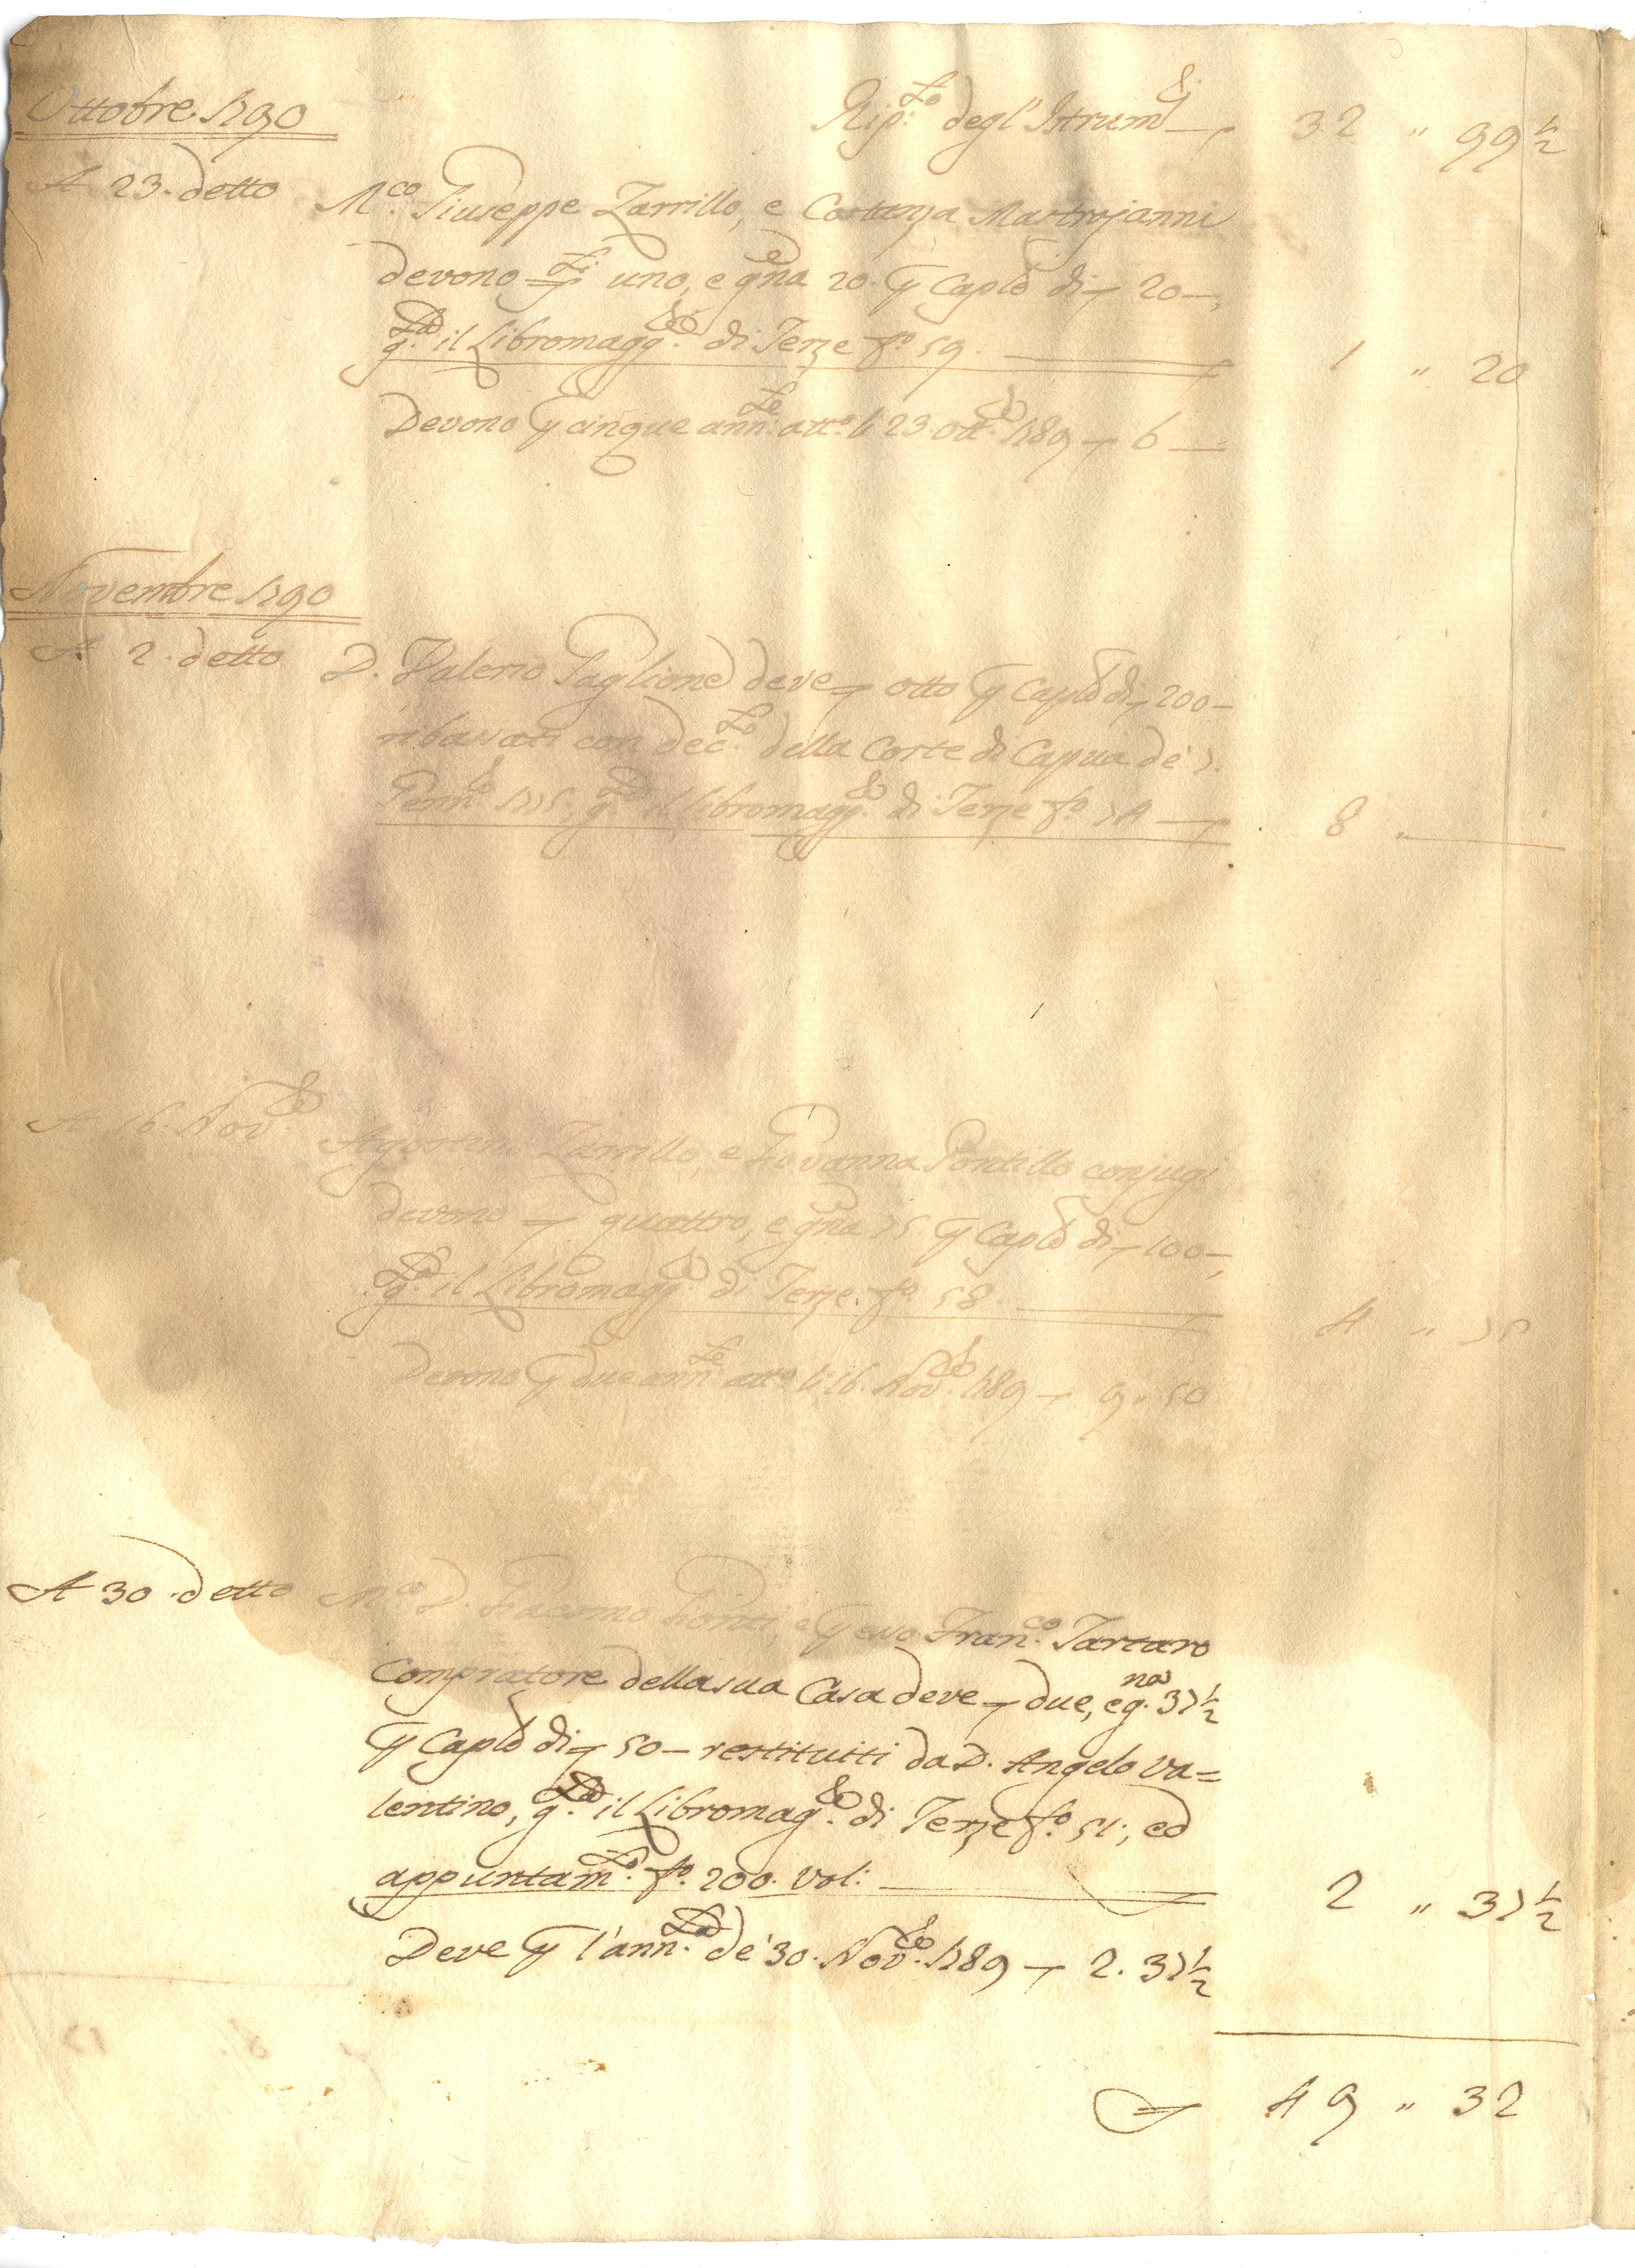 Ottobre 1790
Rip.to degl'Istrum.ti — 32 " 99 1/2
A 23. detto M.co Giuseppe Zarrillo, e Costanza Mastrojanni
devono — uno, e g.na 20. p Cap.le di — 20 —,
g.ta il Libromagg.re di Terze f.o 59. — 1 " 20
Devono p cinque ann.te att.o li 23. Ott.bre 1789 — 6 —
Novembre 1790
A 2. detto D. Valerio Paglione deve — otto p Cap.le di — 200 —
ribassati con dec.to della Corte di Capua de' 7.
Genn.o 1775. g.ta il Libromagg.re di Terze f.o 74 — 8 " —
A 16. Nov.bre Agostino Zarrillo, e Giovanna Pontillo conjugi
devono — quattro, e g.na 75. p Cap.le di — 100 —,
g.ta il Libromagg.re di Terze. f.o 58. — 4 " 75
Devono p due ann.te att.o li 16. Nov.bre 1789 — 9. 50
A 30. detto M.co D. Giacomo Ponti, e p esso Fran.co Tartaro
Compratore della sua Casa deve — due, e g.na 37 1/2
p Cap.le di — 50 — restituiti da D. Angelo Va=
lentino, g.ta il Libromag.re di Terze f.o 51:, ed
appuntam.to f.o 200. vol: — 2 " 37 1/2
Deve p l'ann.ta de' 30. Nov.bre 1789 — 2. 37 1/2
49 " 32